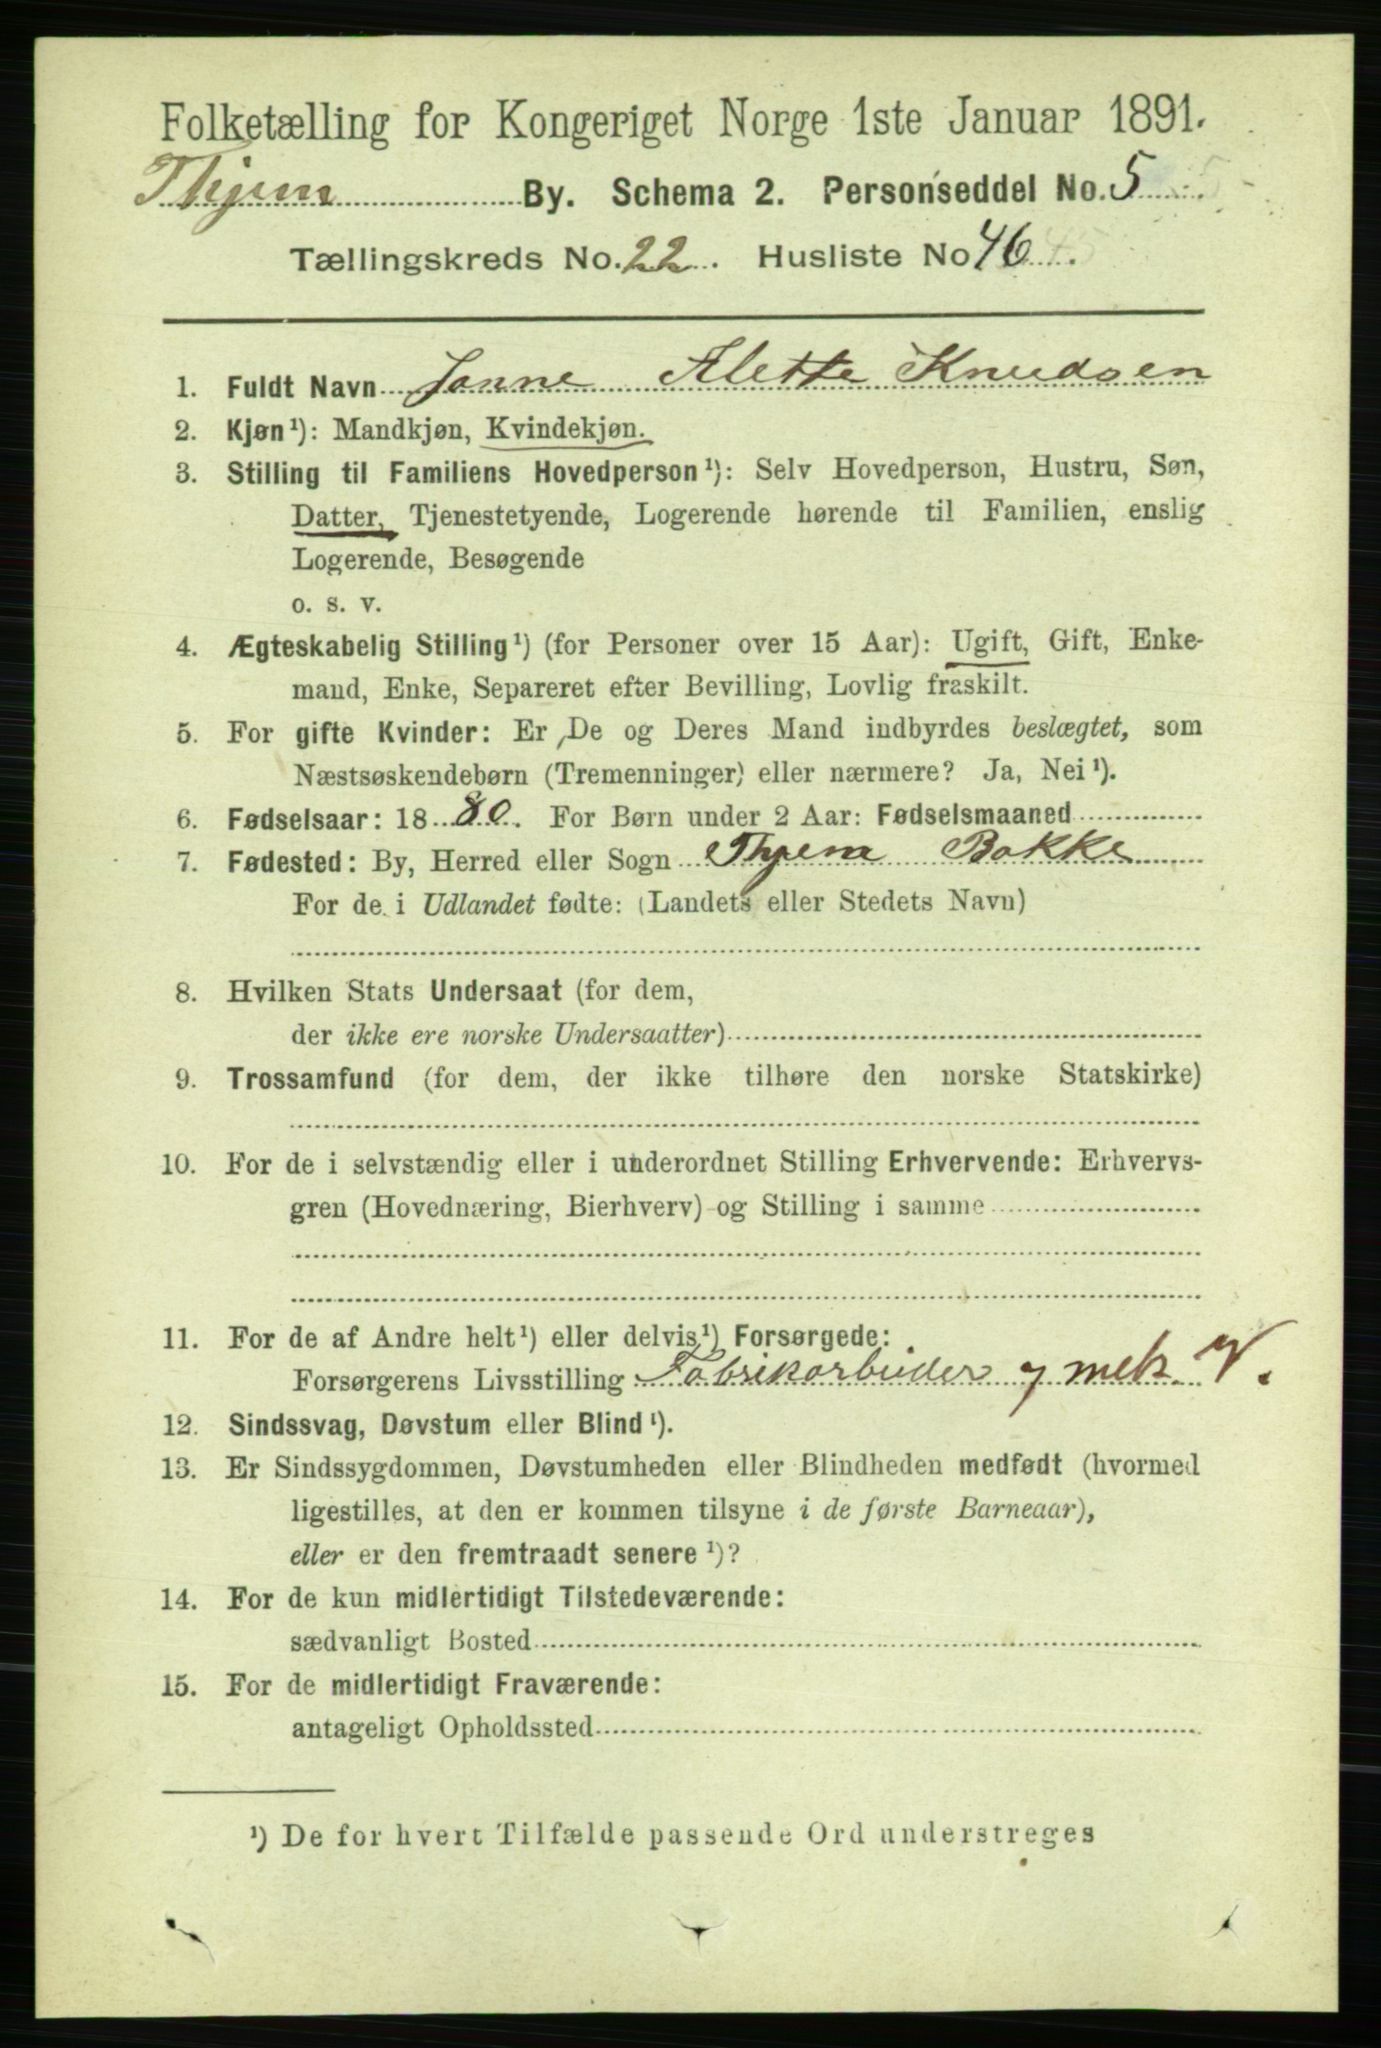 Folketælling for Kongeriget Norge 1ste Januar 1891.
Thjem By. Schema 2. Personseddel No. 5
Tællingskreds No. 22. Husliste No 46.
1. Fuldt Navn Janne Alette Knudsen
2. Kjøn¹): Mandkjøn, Kvindekjøn.
3. Stilling til Familiens Hovedperson¹): Selv Hovedperson, Hustru, Søn,
Datter, Tjenestetyende, Logerende hørende til Familien, enslig
Logerende, Besøgende
o. s. v.
4. Ægteskabelig Stilling¹) (for Personer over 15 Aar): Ugift, Gift, Enke-
mand, Enke, Separeret efter Bevilling, Lovlig fraskilt.
5. For gifte Kvinder: Er De og Deres Mand indbyrdes beslægtet, som
Næstsøskendebørn (Tremenninger) eller nærmere? Ja, Nei¹).
6. Fødselsaar: 1880. For Børn under 2 Aar: Fødselsmaaned
7. Fødested: By, Herred eller Sogn Thjem Bakke
For de i Udlandet fødte: (Landets eller Stedets Navn)
8. Hvilken Stats Undersaat (for dem,
der ikke ere norske Undersaatter)
9. Trossamfund (for dem, der ikke tilhøre den norske Statskirke)
10. For de i selvstændig eller i underordnet Stilling Erhvervende: Erhvervs-
gren (Hovednæring, Bierhverv) og Stilling i samme
11. For de af Andre helt¹) eller delvis¹) Forsørgede:
Forsørgerens Livsstilling Fabrikarbeider mek. V.
12. Sindssvag, Døvstum eller Blind¹).
13. Er Sindssygdommen, Døvstumheden eller Blindheden medfødt (hvormed
ligestilles, at den er kommen tilsyne i de første Barneaar),
eller er den fremtraadt senere¹)?
14. For de kun midlertidigt Tilstedeværende:
sædvanligt Bosted
15. For de midlertidigt Fraværende:
antageligt Opholdssted
¹) De for hvert Tilfælde passende Ord understreges